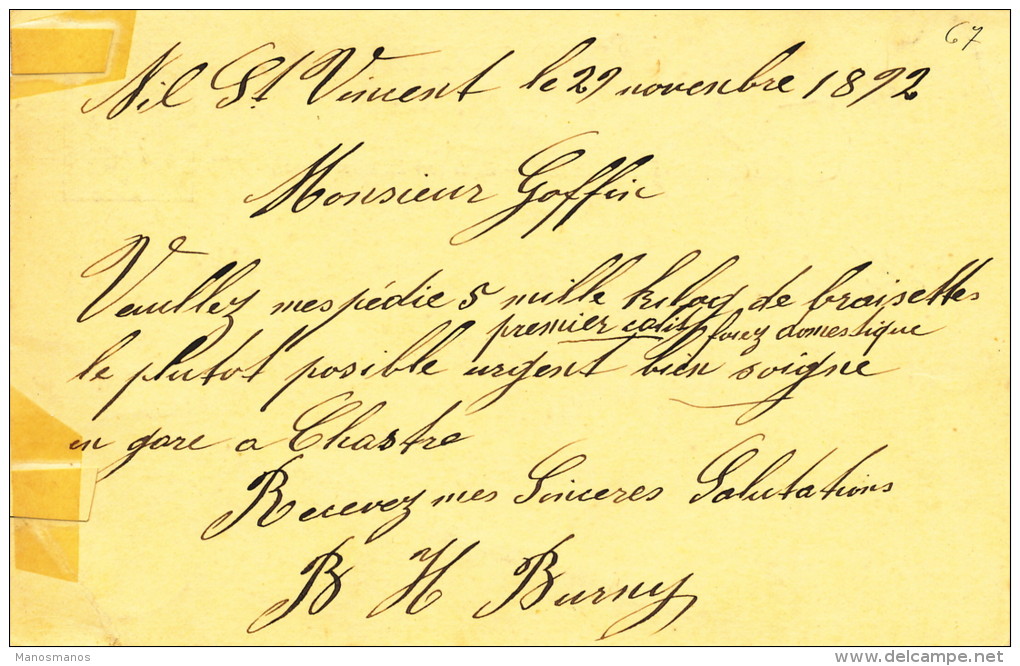 67
Nil St Vincent le 29 novenbre 1892
Monsieur Goffin
Veuillez mespédie 5 mille kilog de braisettes
premier calité
domestique
le plutot posible urgent bien soigne
en gare a Chastre
Recevez mes Sinceres Salutations
B H Burny
Manosmanos
delcampe.net